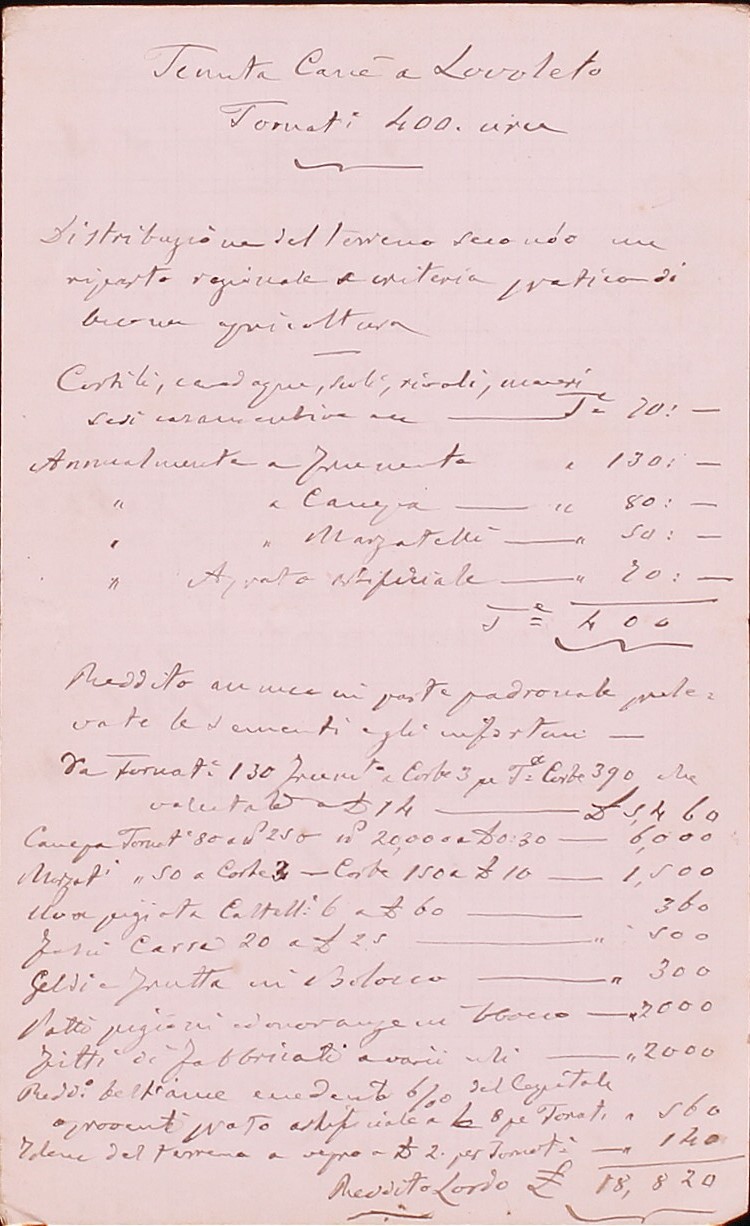 Tenuta Canè a Lovoleto
Tornati 400. circa
Distribuzione del terreno secondo un
riparto regionale e criteria pratica di
buona agricoltura
Cortili, cavedagne, scoli, rivali, maceri
T.e 70: —
Annualmente a Frumento " 130: —
" a Canepa — " 80: —
" " Marzatelli — " 50: —
" A prato artificiale — " 70: —
T.e = 400
Reddito annuo in parte padronale prele-
vate le sementi e gli infortuni —
Da Tornat.i 130 Frument.o a Corbe 3 per T.a Corbe 390 che
valutate a £ 14 — £ 5,460
Canepa Tornat.i 80 a lb 250 lb 20,000 a £ 0:30 — 6,000
Marzat.i " 50 a Corbe 3 — Corbe 150 a £ 10 — 1,500
Uva pigiata Castell.i 6 a £ 60 — 360
Fassi Carra 20 a £ 25 — " 500
Gelsi e Frutta in Blocco — " 300
Patti pigioni ed onoranze in blocco — " 2000
Fitti di Fabbricati a varii usi — " 2000
Redd.o bestiame 6% del Capitale
prato artificiale a £ 8 per Tornat.i " 560
Idem del terreno a £ 2. per Tornat.i — " 140
Reddito Lordo £ 18,820